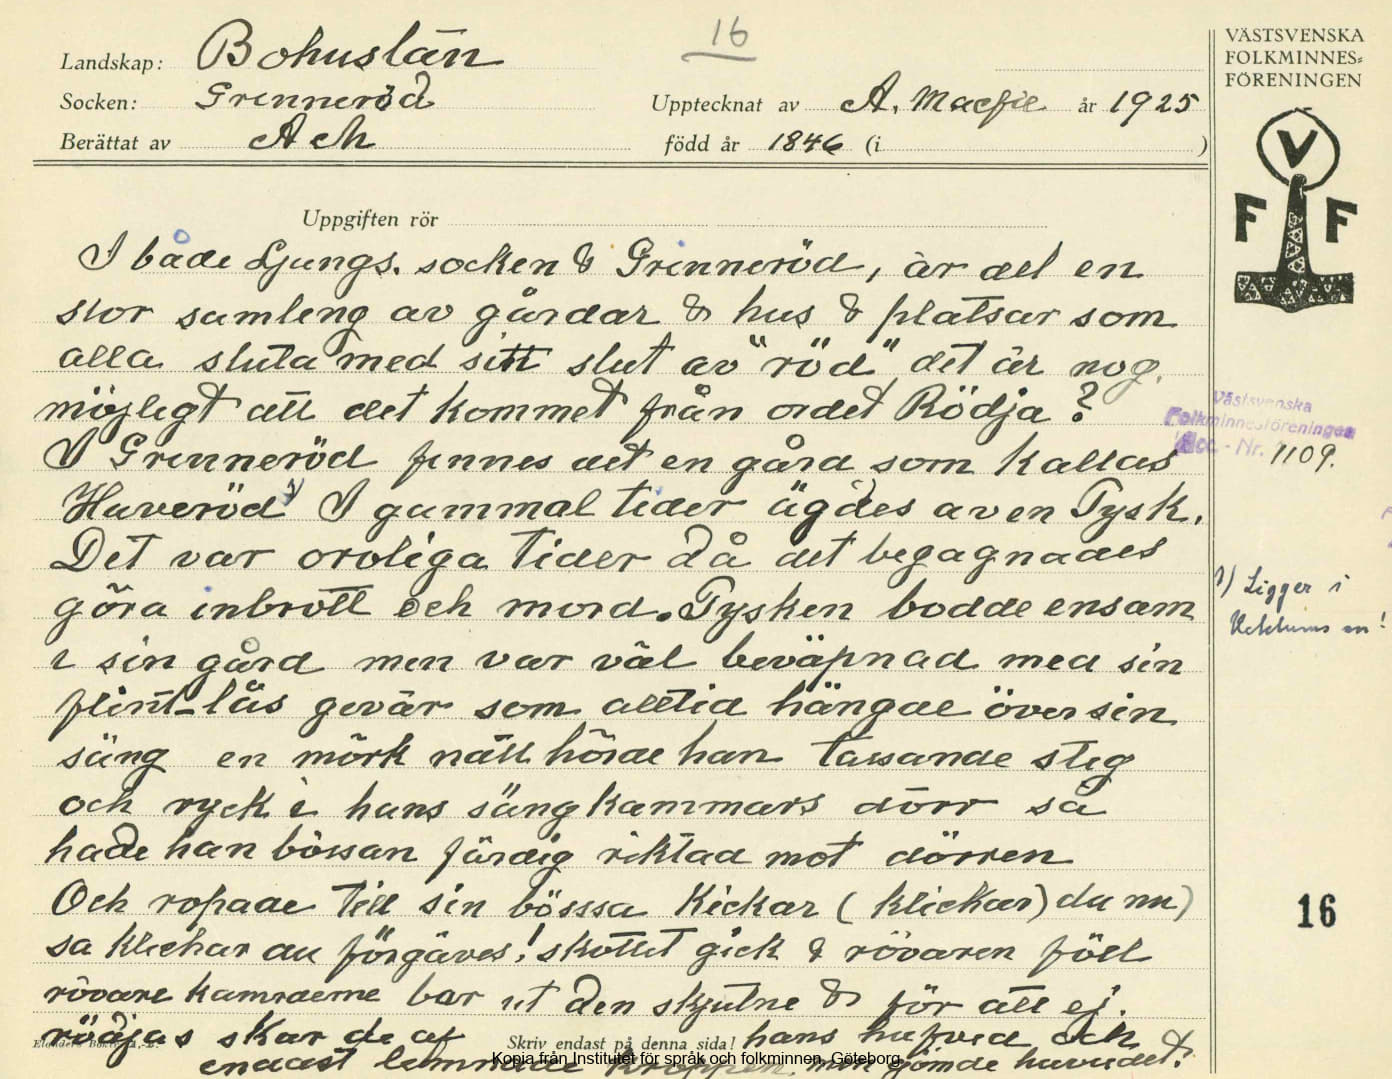 16
Landskap: Bohuslän
Socken: Grinneröd
Upptecknat av A. Macfie år 1925
Berättat av A M
född år 1846 (i )
Uppgiften rör
I både Ljungs. socken & Grinneröd, är det en
stor samling av gårdar & hus & platsar som
alla sluta med sitt slut av "röd" det är nog.
möjligt att det kommet från ordet Rödja?
I Grinneröd finnes det en gård som kallas
Huveröd 1) I gammal tider ägdes av en Tysk.
Det var oroliga tider då det begagnades
göra inbrott och mord. Tysken bodde ensam
i sin gård men var väl beväpnad med sin
flint-lås gevär som alltid hängde över sin
säng en mörk natt hörde han tassande steg
och ryck i hans sängkammars dörr så
hade han bössan färdig riktad mot dörren
Och ropade till sin bösssa Kickar (klickar) du nu)
sa klickar du förgäves! skottet gick & rövaren föll
rövare kamraerne bar ut den skjutne & för att ej.
röjas skar de af hans hufved och
endast lemnade kroppen. men gömde huvudet.
Skriv endast på denna sida!
Kopia från Institutet för språk och folkminnen, Göteborg
VÄSTSVENSKA
FOLKMINNES=
FÖRENINGEN
V
F F
Västsvenska
Folkminnesföreningen
Acc.-Nr. 1109.
1) Ligger i
16